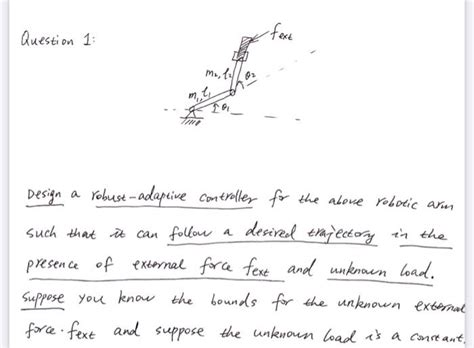 Question 1:
fext
m₂, l₂
θ₂
m₁, l₁
θ₁
Design a robust-adaptive controller for the above robotic arm
such that it can follow a desired trajectory in the
presence of external force fext and unknown load.
Suppose you know the bounds for the unknown external
force fext and suppose the unknown load is a constant.